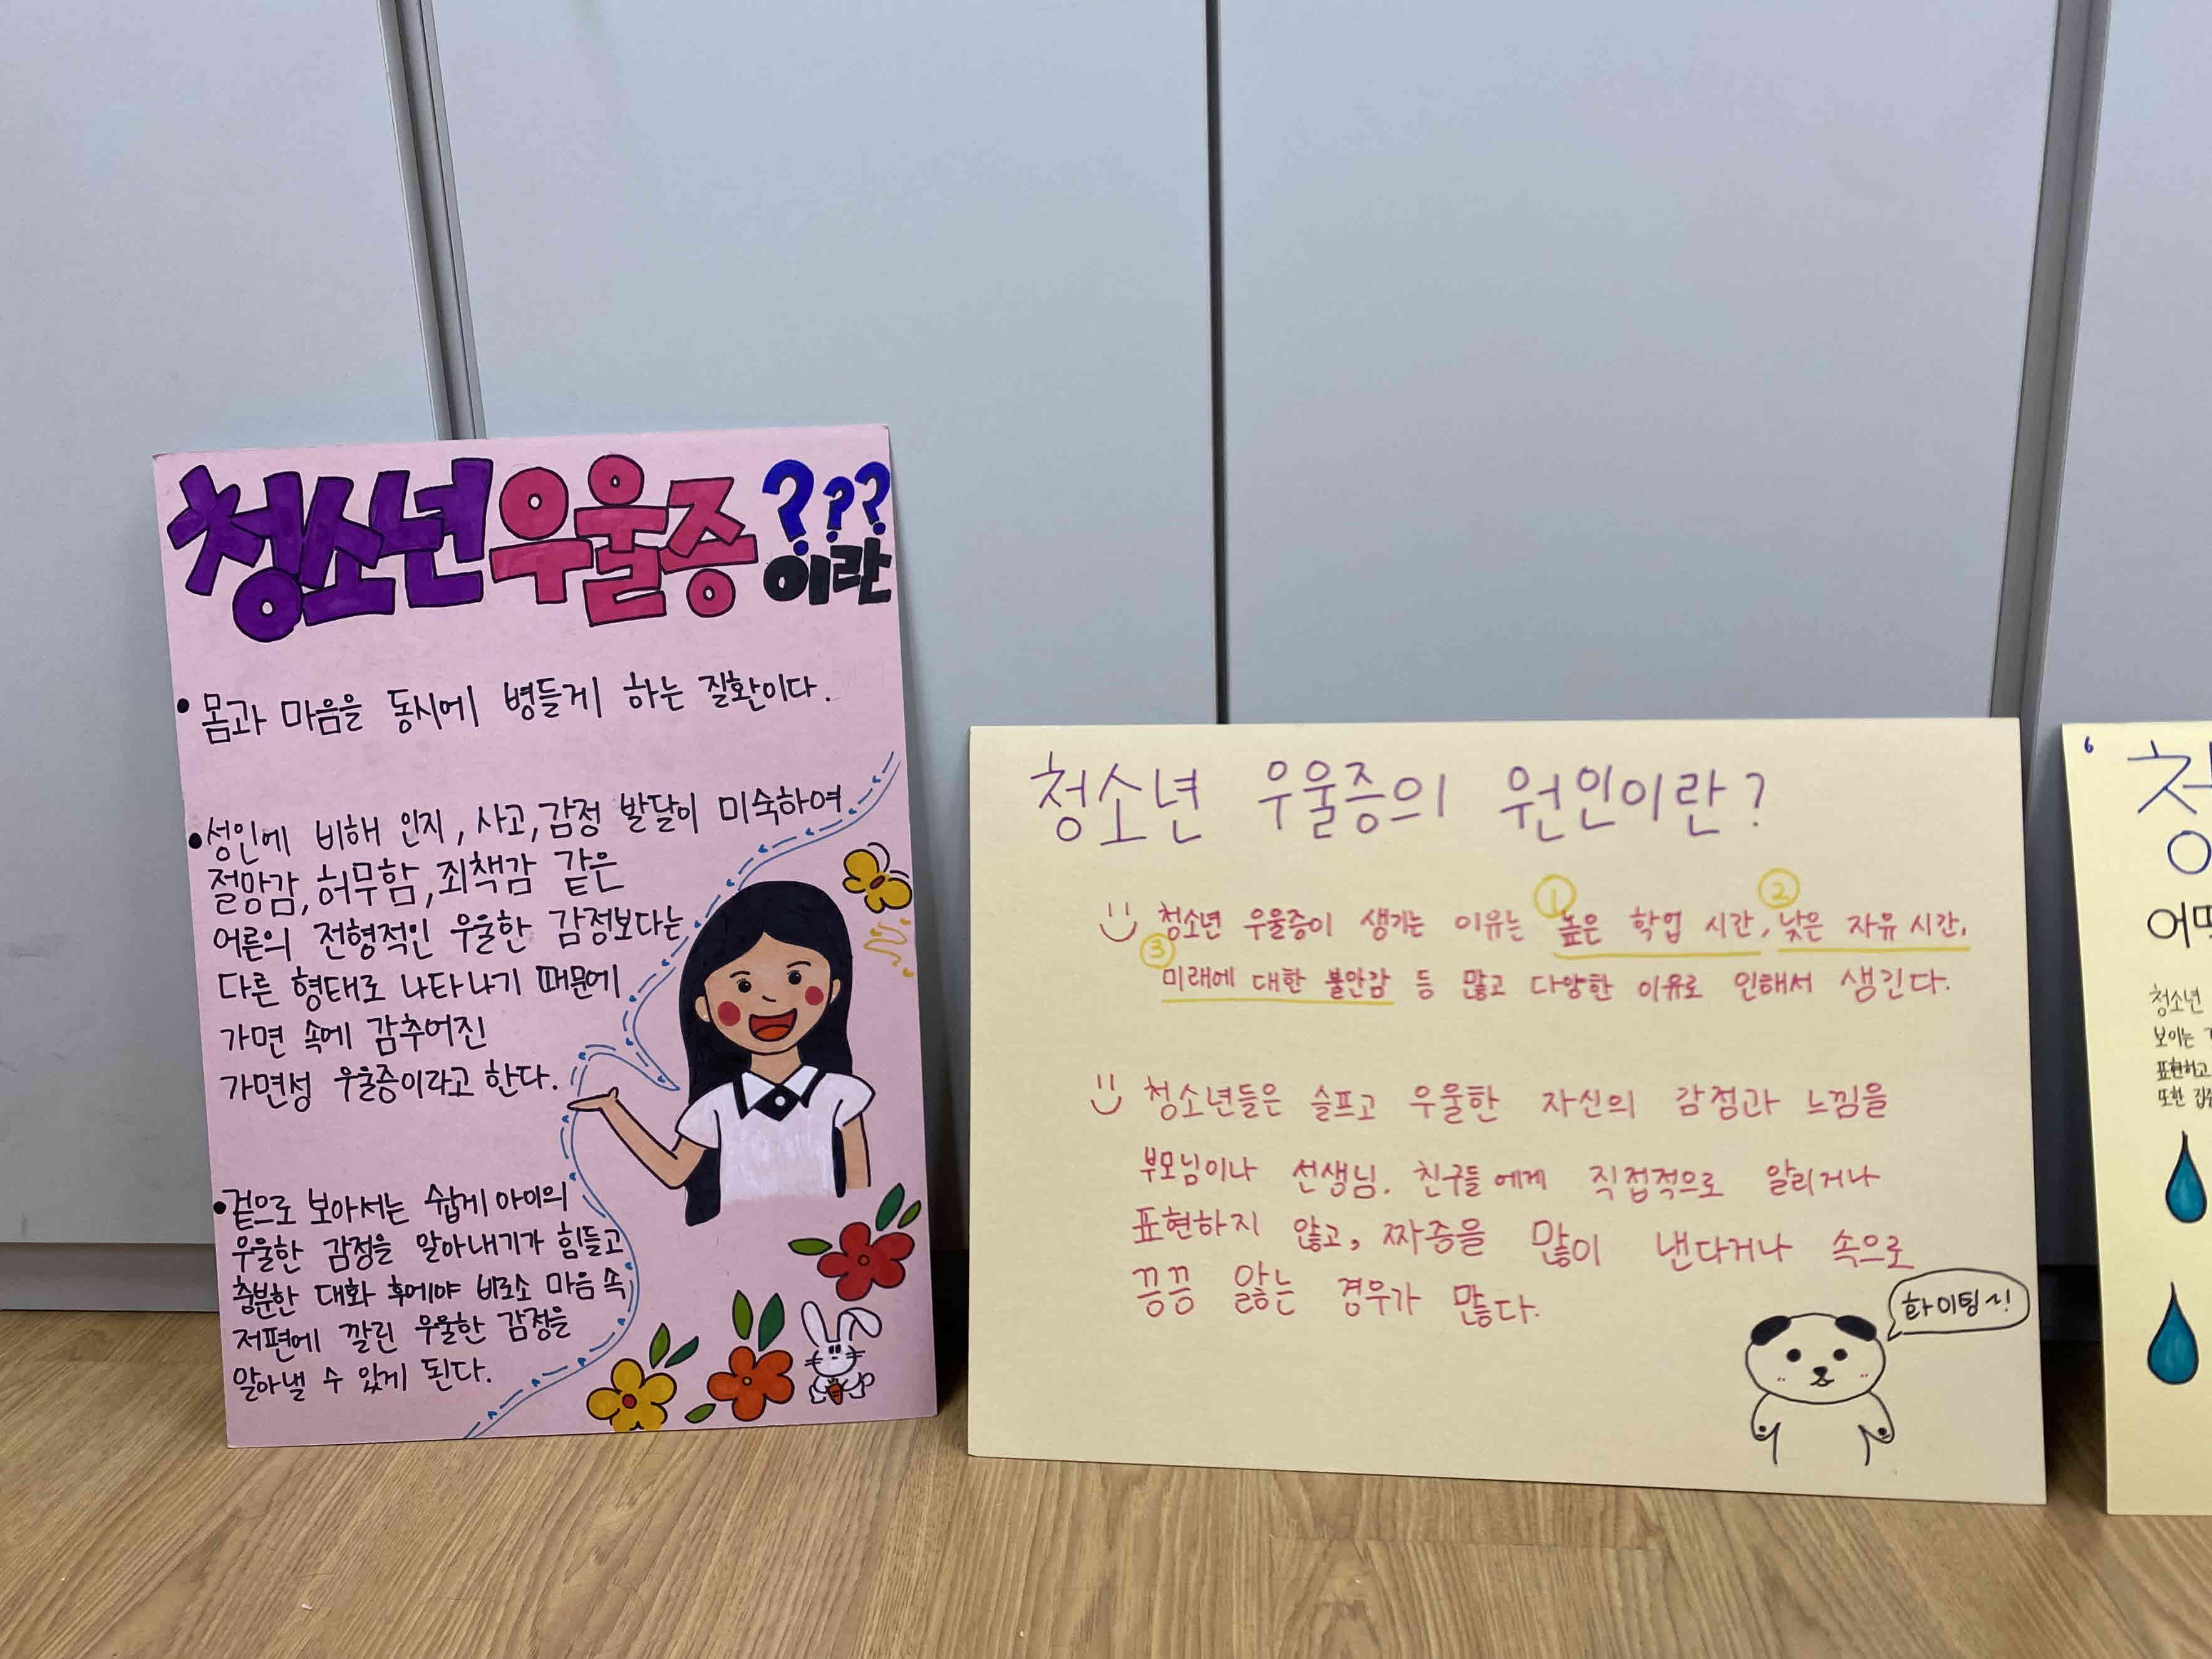 청소년우울증???
이란
• 몸과 마음을 동시에 병들게 하는 질환이다.
• 성인에 비해 인지, 사고, 감정 발달이 미숙하여
절망감, 허무함, 죄책감 같은
어른의 전형적인 우울한 감정보다는
다른 형태로 나타나기 때문에
가면 속에 감추어진
가면성 우울증이라고 한다.
• 겉으로 보아서는 쉽게 아이의
우울한 감정을 알아내기가 힘들고
충분한 대화 후에야 비로소 마음 속
저편에 깔린 우울한 감정을
알아낼 수 있게 된다.
청소년 우울증의 원인이란?
① ②
청소년 우울증이 생기는 이유는 높은 학업 시간, 낮은 자유 시간,
③
미래에 대한 불안감 등 많고 다양한 이유로 인해서 생긴다.
청소년들은 슬프고 우울한 자신의 감정과 느낌을
부모님이나 선생님, 친구들에게 직접적으로 알리거나
표현하지 않고, 짜증을 많이 낸다거나 속으로
끙끙 앓는 경우가 많다.
화이팅~!
6
청
어떠
청소년
보이는
표현하고
또한